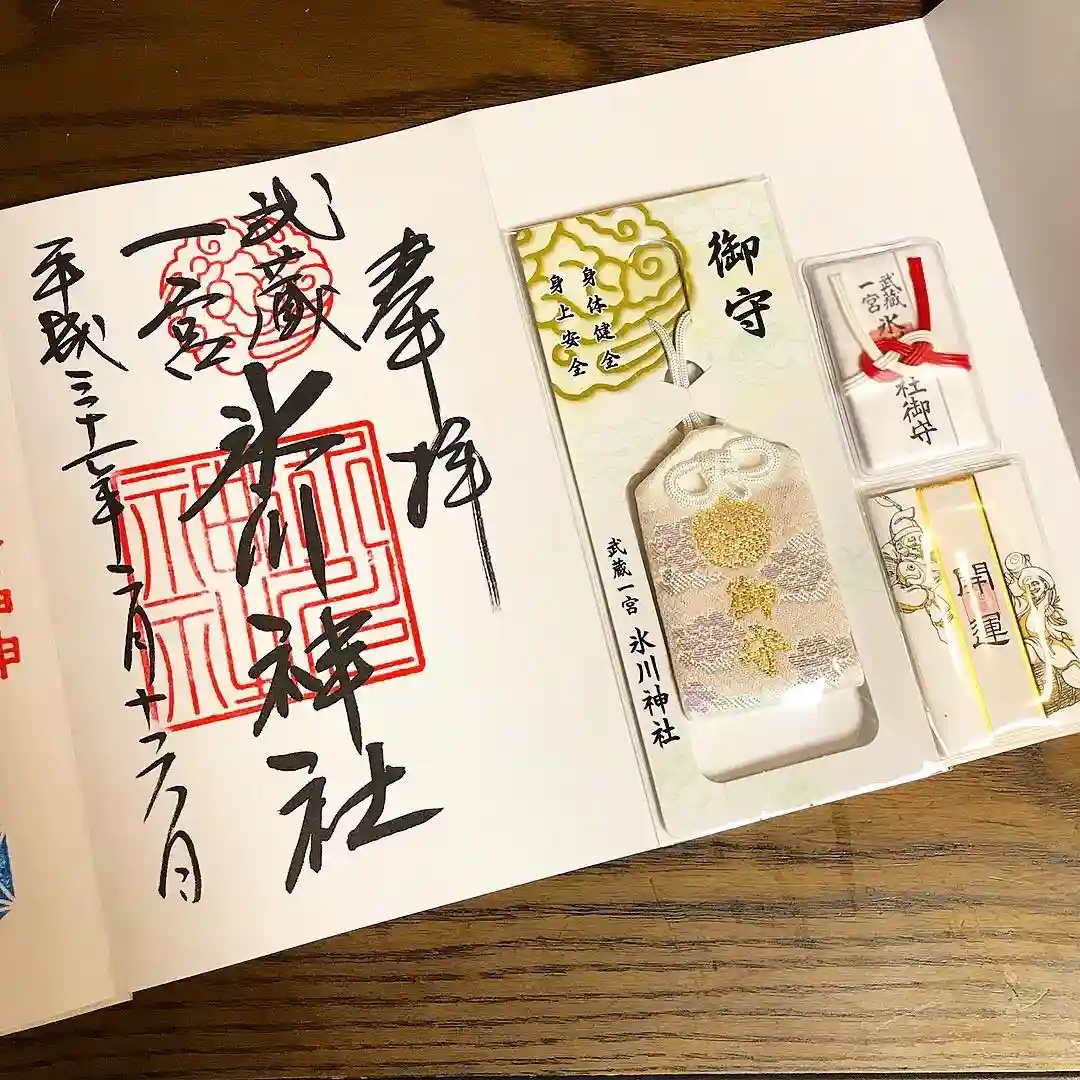 奉拝
武蔵
一宮
氷川神社
平成二十七年 月十六日
御守
身体健全
身上安全
御守
武蔵一宮 氷川神社
武蔵
一宮
氷 社御守
開運